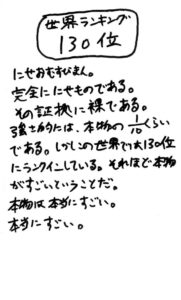 世界ランキング
130位
にせおむすびまん。
完全ににせものである。
その証拠に裸である。
強さ的には、本物の1/10くらい
である。しかしの世界で大130位
にランクインしている。それほど本物
がすごいていうことだ。
本物は本当にすごい。
本当にすごい。